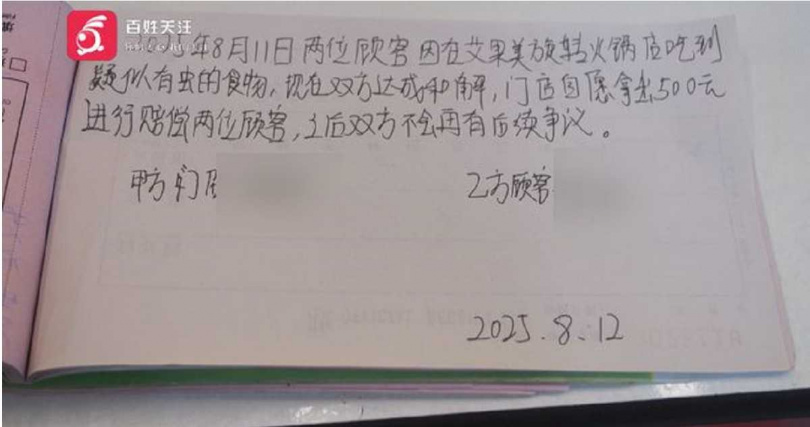 百姓关注
2025年8月11日两位顾客因在艾果美旋转火锅店吃到
疑似有虫的食物，现在双方达成和解，门店自愿拿出500元
进行赔偿两位顾客，之后双方不会再有后续争议。
甲方门店
乙方顾客
2025.8.12